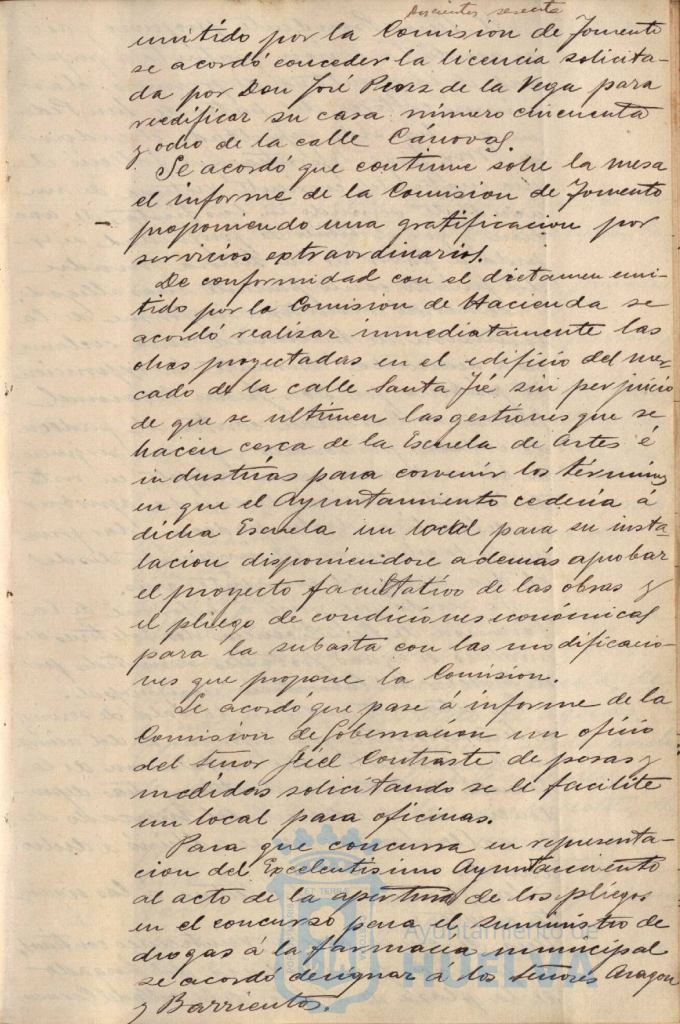 Doscientos sesenta
emitido por la Comision de Fomento
se acordó conceder la licencia solicita-
da por Don José Perez de la Vega para
reedificar su casa número cincuenta
y ocho de la calle Cánovas.
Se acordó que continue sobre la mesa
el informe de la Comision de Fomento
proponiendo una gratificacion por
servicios extraordinarios.
De conformidad con el dictamen emi-
tido por la Comision de Hacienda se
acordó realizar inmediatamente las
obras proyectadas en el edificio del mer-
cado de la calle Santa Fé sin perjuicio
de que se ultimen las gestiones que se
hacen cerca de la Escuela de Artes é
industrias para convenir los términos
en que el Ayuntamiento cederia á
dicha Escuela un local para su insta-
lacion disponiendose además aprobar
el proyecto facultativo de las obras y
el pliego de condiciones económicas
para la subasta con las modificacio-
nes que propone la Comision.
Se acordó que pase á informe de la
Comision de Gobernacion un oficio
del Señor Fiel Contraste de pesas y
medidas solicitando se le facilite
un local para oficinas.
Para que concurra en representa-
cion del Excelentisimo Ayuntamiento
al acto de la apertura de los pliegos
en el concurso para el suministro de
drogas á la farmacia municipal
se acordó designar á los Señores Aragon
y Barrientos.
Ayuntamiento de
HUELVA